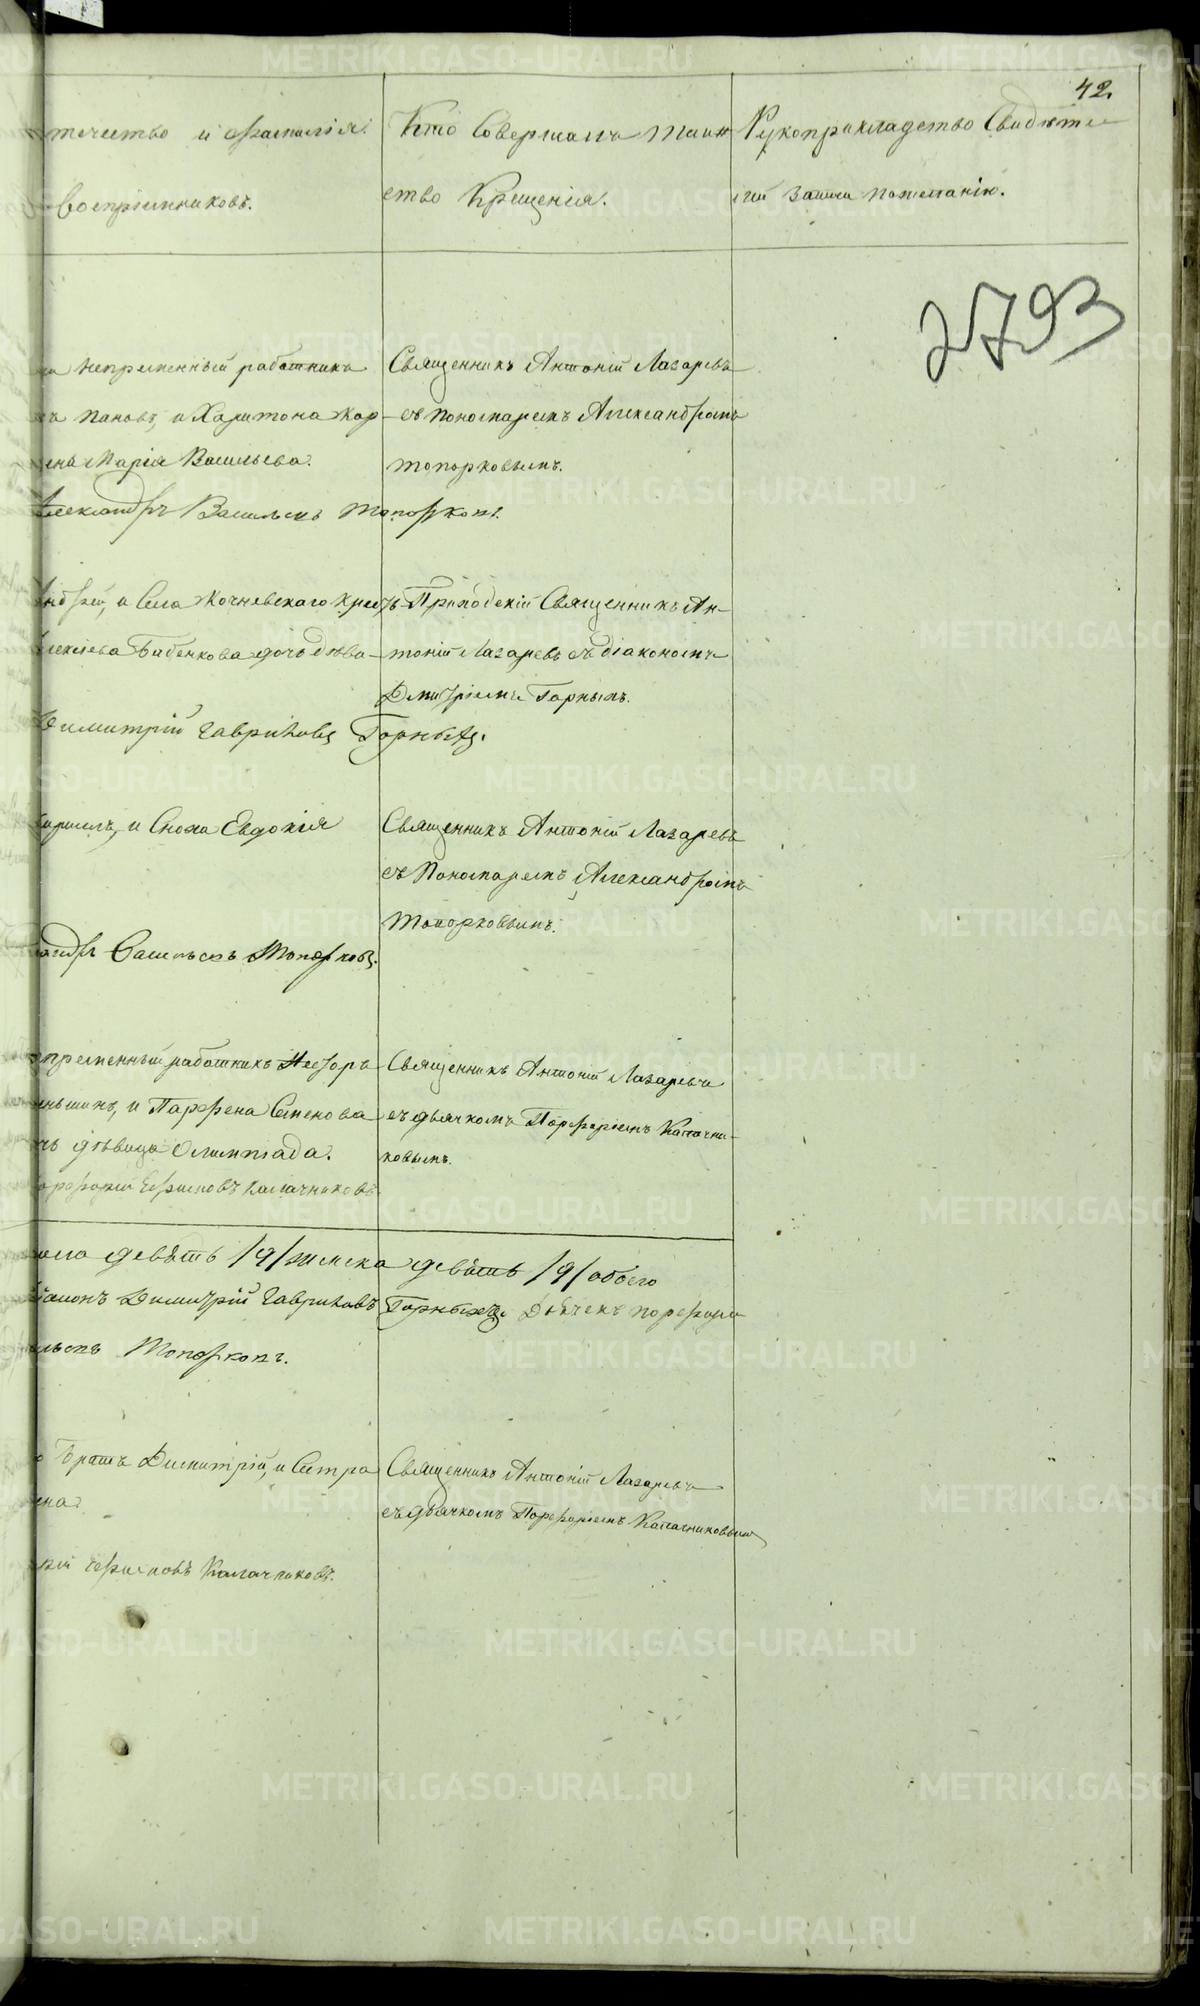 42.
течество и фамилія
Воспріемниковъ.
Кто Совершалъ Таин
ство Крещенія.
Рукоприкладство Свидѣте
лей записи по желанію.
2793
непременный работникъ
Пановъ, и Харитона Кор
жена Марія Васильева.
Александръ Васильевъ Топорковъ.
Священникъ Антоній Лазаревъ
съ Пономаремъ Александромъ
Топорковымъ.
Андрей, и Села Кочневскаго крест
Алексіева Бабенкова дочь дѣви
Димитрій Гавриловъ Горныхъ.
Приходскій Священникъ Ан-
тоній Лазаревъ съ Діакономъ
Димитріемъ Горныхъ.
Кириллъ, и Сноха Евдокія
сандръ Васильевъ Топорковъ.
Священникъ Антоній Лазаревъ
съ Пономаремъ Александромъ
Топорковымъ.
непременный работникъ Несторъ
и Парфена Семенова
чь дѣвица Олимпіада.
орфирій Ефимовъ Калачниковъ.
Священникъ Антоній Лазаревъ
съ дьячкомъ Порфиріемъ Калачни-
ковымъ.
пола девѣть /9/ женска девѣть /9/ обоего
Діаконъ Димитрій Гавриловъ Горныхъ. Дьячекъ Порфирій
льевъ Топорковъ.
Братъ Димитрій, и Сестра
ена.
рій Ефимовъ Калачниковъ.
Священникъ Антоній Лазаревъ
съ дьячкомъ Порфиріемъ Калачниковымъ
METRIKI.GASO-URAL.RU